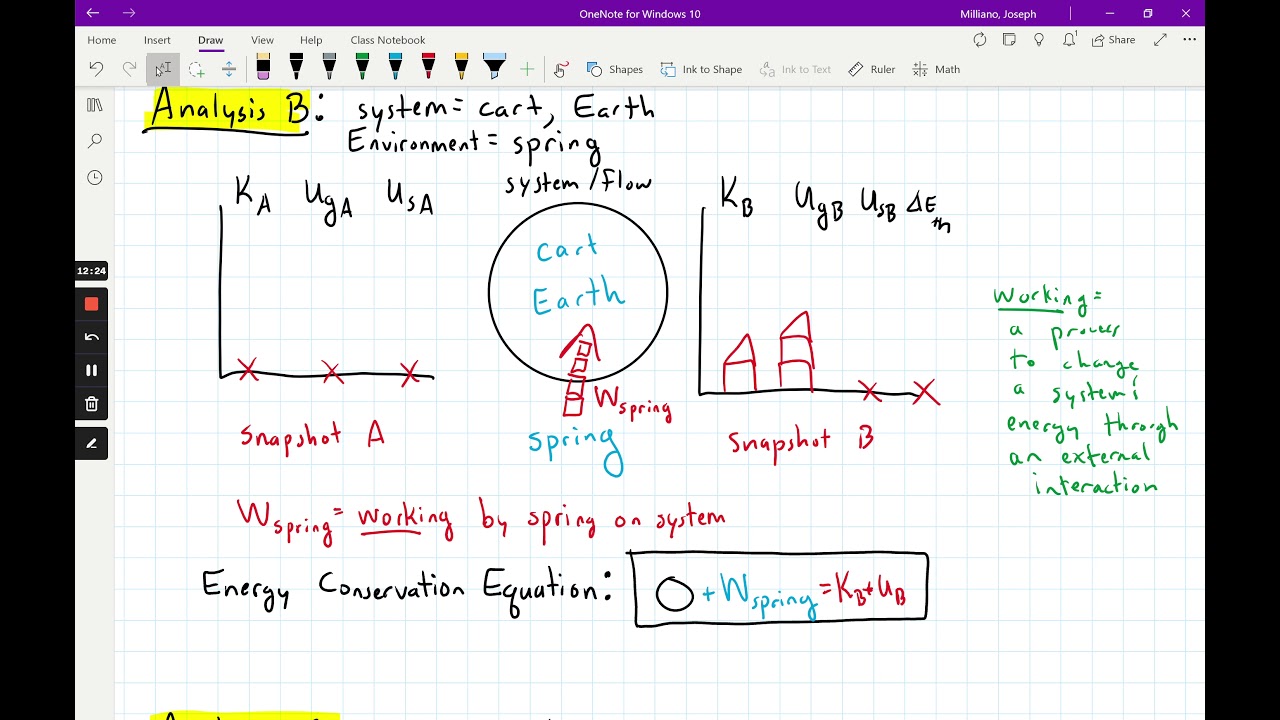 OneNote for Windows 10
Milliano, Joseph
Home Insert Draw View Help Class Notebook
Share
Shapes Ink to Shape Ink to Text Ruler Math
Analysis B: system= cart, Earth
Environment= spring
system/flow
K_A U_gA U_sA
K_B U_gB U_sB ΔE_th
cart
Earth
W_spring
spring
12:24
Snapshot A
Snapshot B
Working=
a process
to change
a system's
energy through
an external
interaction
W_spring= working by spring on system
Energy Conservation Equation: O + W_spring = K_B + U_B